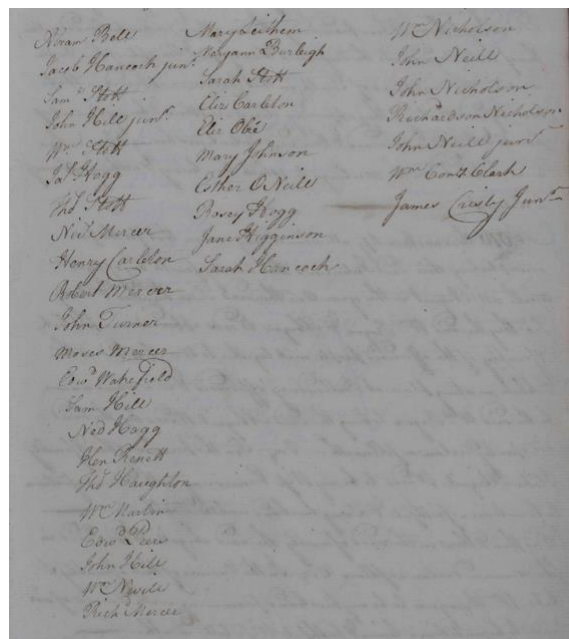 Hiram Bell
Jacob Hancock junr.
Saml. Stott
John Hill junr.
Wm. Stott
Jas. Hogg
Thos. Stott
Nics. Mercer
Henry Carleton
Robert Mercer
John Turner
Moses Mercer
Edwd. Wakefield
Sam Hill
Ned Hogg
Hen
Thos. Haughton
Wm. Martin
Edwd. Peers
John Hill
Wm. Nevill
Richd. Mercer
Mary Leithem
Maryann Burleigh
Sarah Stott
Eliz Carleton
Eliz
Mary Johnson
Esther O'Neill
Rosey Hogg
Jane Higginson
Sarah Hancock
Wm. Nicholson
John Neill
John Nicholson
Richardson Nicholson
John Neill junr.
Wm. Clark
James Junr.